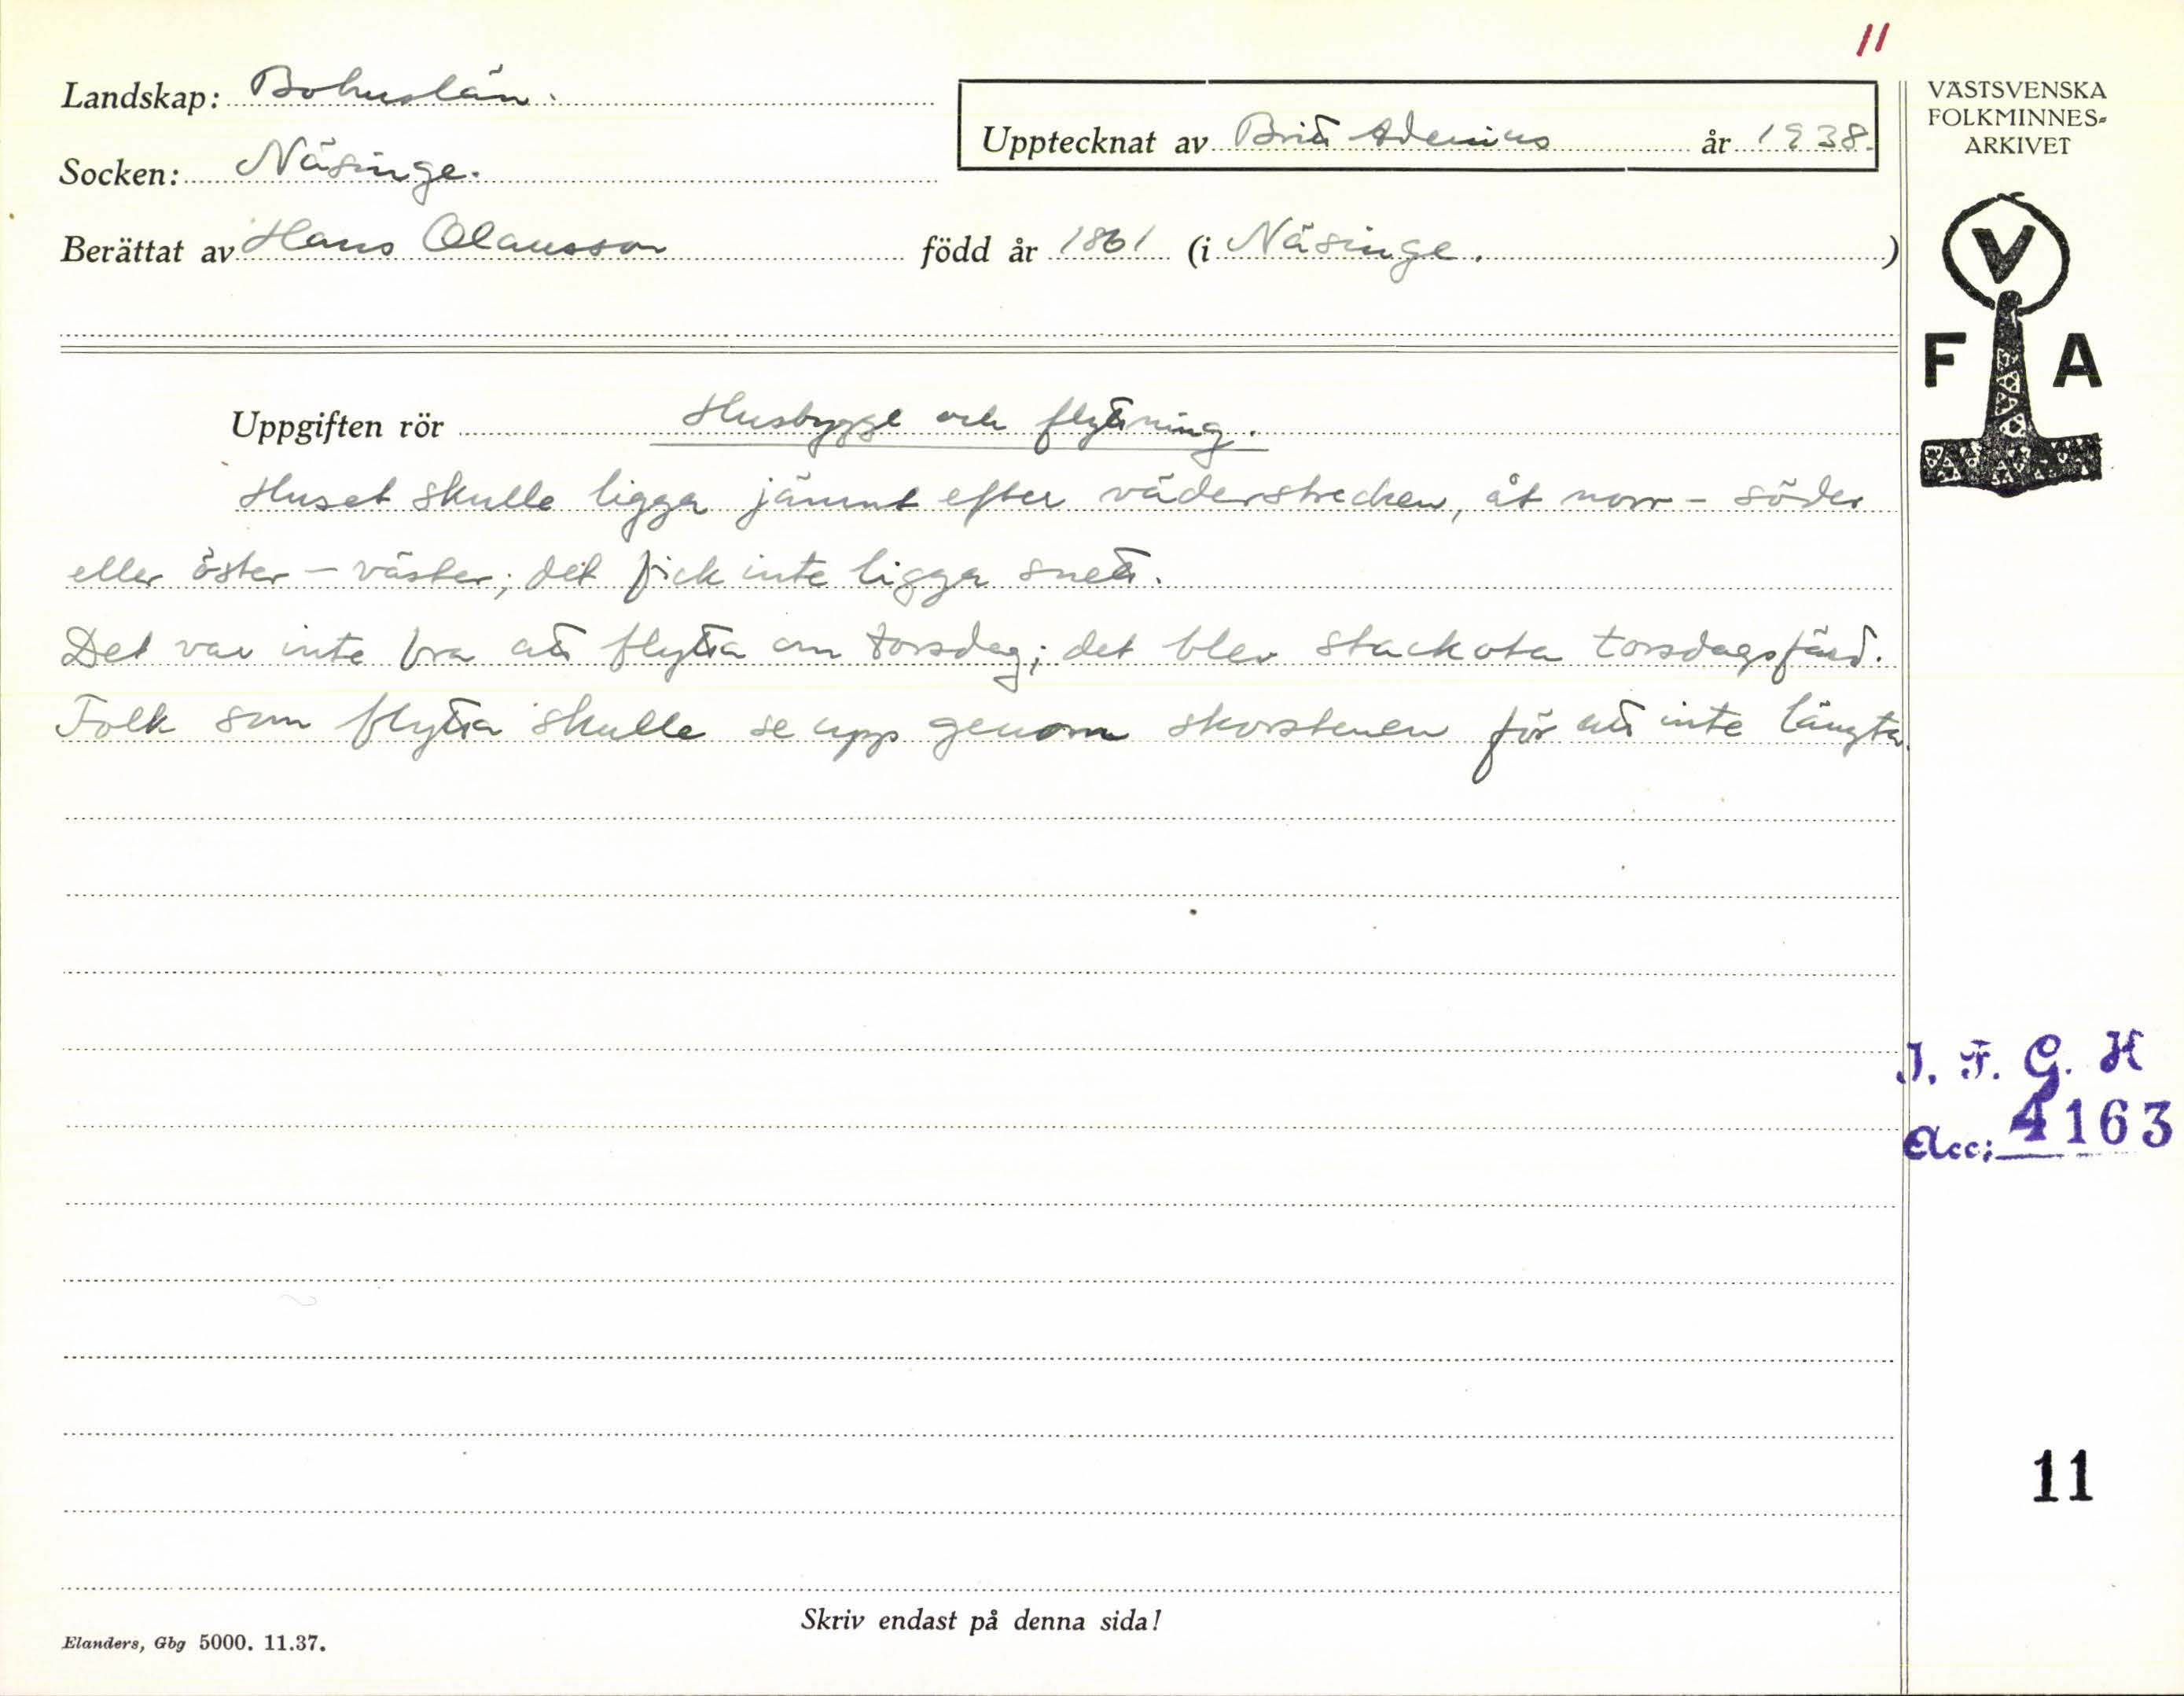 11
Landskap: Bohuslän.
Upptecknat av Britt Adenius år 1938.
Socken: Näsinge.
Berättat av Hans Olausson född år 1861 (i Näsinge.)
VÄSTSVENSKA
FOLKMINNES-
ARKIVET
V
F A
Uppgiften rör Husbygge och flyttning.
Huset skulle ligga jämnt efter väderstrecken, åt norr - söder
eller öster - väster; det fick inte ligga snett.
Det var inte bra att flytta om torsdag; det blev stackota torsdagsfärd.
Folk som flytta skulle se upp genom skorstenen för att inte längta.
I. F. G. H
Acc: 4163
11
Skriv endast på denna sida!
Elanders, Gbg 5000. 11.37.